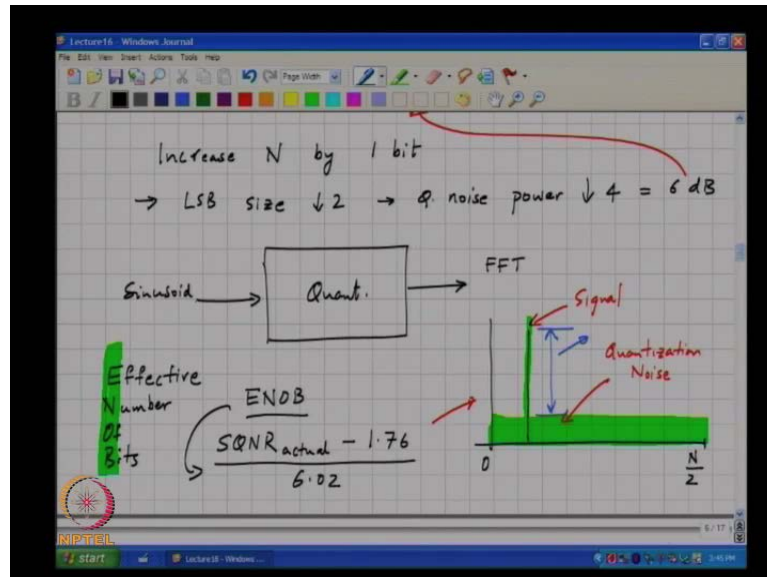 Lecture16 - Windows Journal
File Edit View Insert Actions Tools Help
Page Width
B I
Increase N by 1 bit
→ LSB size ↓ 2 → Q. noise power ↓ 4 = 6 dB
Sinusoid → Quant. → FFT
Signal
Quantization
Noise
Effective
Number
Of
Bits
ENOB
SQNR actual - 1.76
6.02
0
N
2
NPTEL
6 / 17
start
Lecture16 - Windows ...
3:45 PM